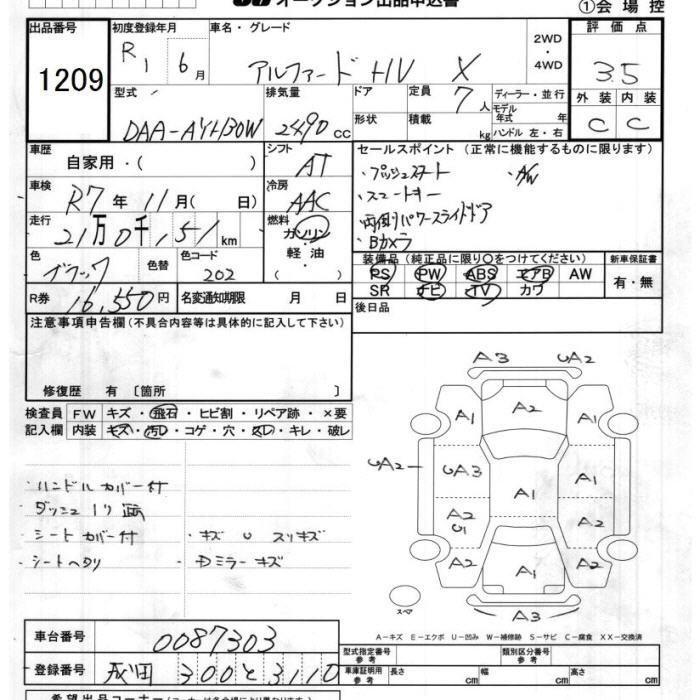 オークション出品申込書
①会場控
出品番号
1209
初度登録年月
R1 6月
車名・グレード
アルファードHV X
2WD
・
4WD
評価点
3.5
型式
DAA-AYH30W
排気量
2490 cc
ドア
形状
定員 7人
積載 kg
ディーラー・並行
モデル年式 年
ハンドル 左・右
外装 内装
C C
車歴
自家用・( )
シフト
AT
車検
R7年 11月( 日)
冷房
AAC
走行
21万0千151km
燃料
ガソリン
・
軽油
( )
色
ブラック
色替
色コード
202
R券 16,550円
名変通知期限 月 日
セールスポイント (正常に機能するものに限ります)
・プッシュスタート ・AW
・スマートキー
・両側パワースライドドア
・Bカメラ
装備品 (純正品に限り〇をつけてください)
PS PW ABS エアB AW
SR ナビ TV カワ
新車保証書
有・無
後日品
注意事項申告欄 (不具合内容等は具体的に記入して下さい)
修復歴 有 〔箇所 〕
検査員 FW キズ・飛石・ヒビ割・リペア跡・×要
記入欄 内装 キズ・汚レ・コゲ・穴・スレ・キレ・破レ
・ハンドルカバー付
・シートカバー付
・シートヘタリ
・キズ U スリキズ
・Dミラーキズ
A3 UA2
A2
A1 A1
UA2 UA3 A1 A1
A2 U1 A2
A2 A1 A2
スペア
A3
A-キズ E-エクボ U-凹み W-補修跡 S-サビ C-腐食 XX-交換済
車台番号 0087303
登録番号 成田 300 と 3110
型式指定番号 参考
類別区分番号 参考
車庫証明用 参考 長さ cm 幅 cm 高さ cm
希望出品コーナー